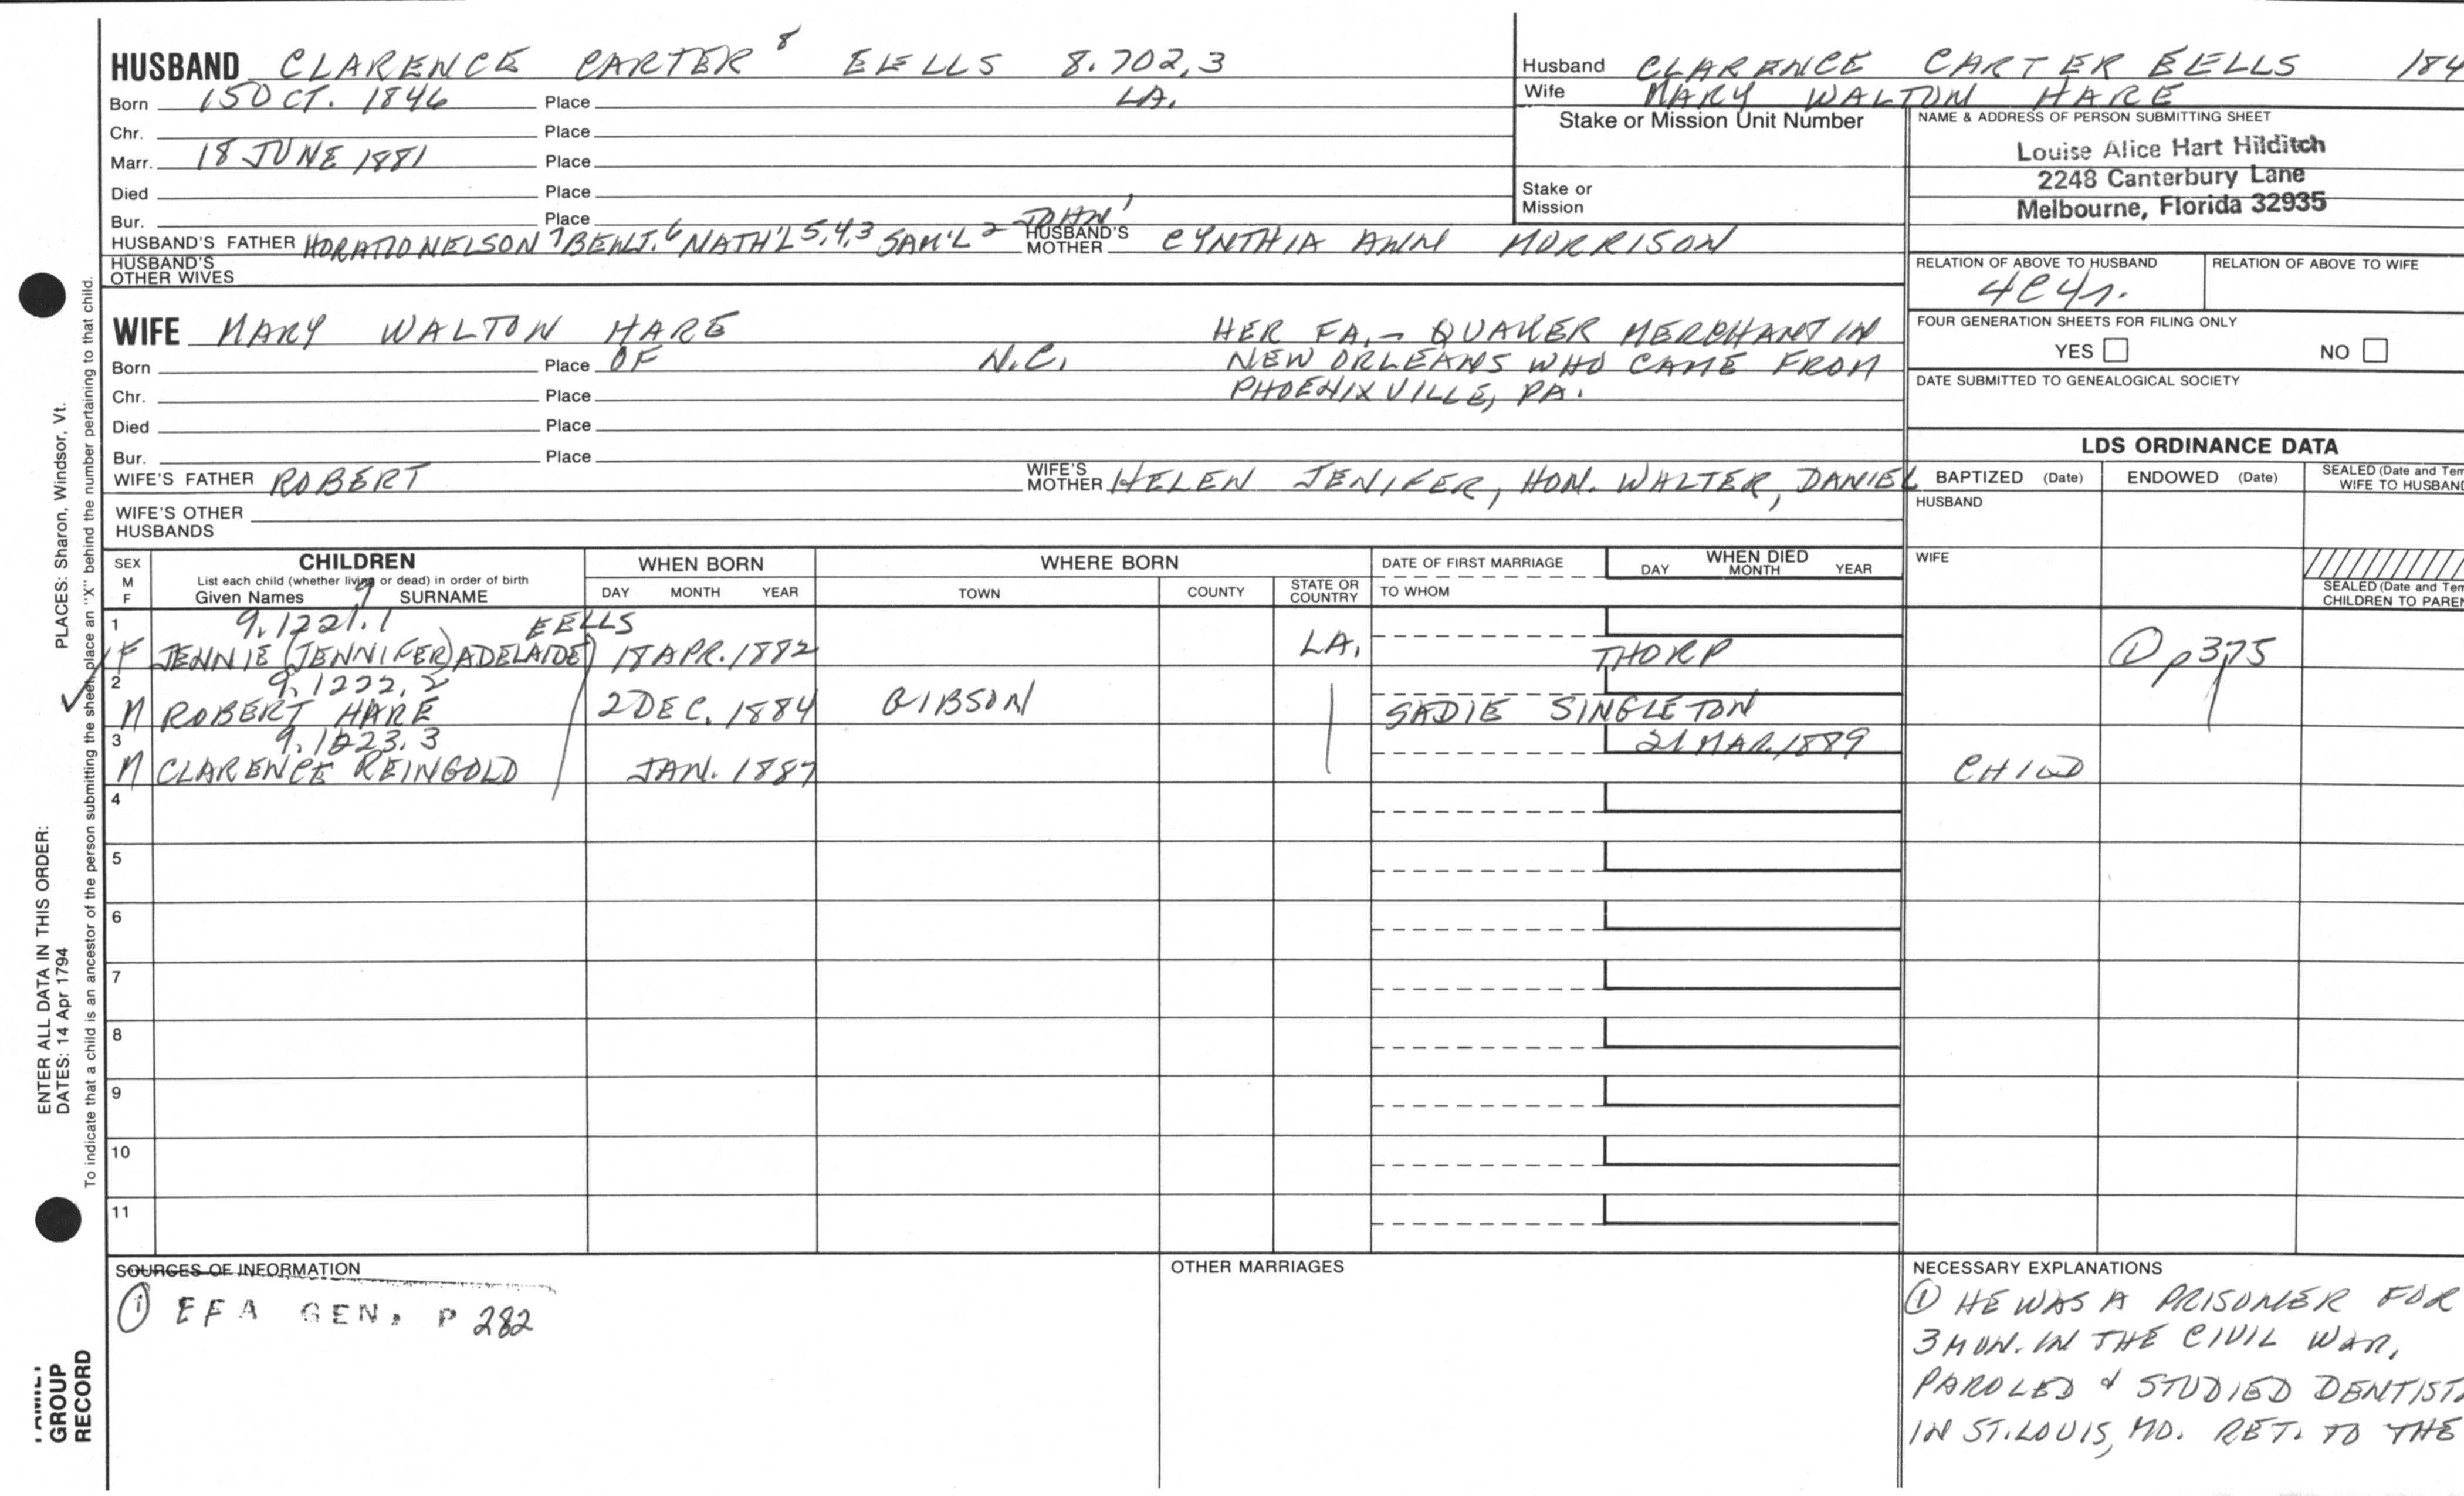 HUSBAND CLARENCE CARTER 8 EELLS 8.702,3
Born 15 OCT. 1846 Place LA.
Chr. Place
Marr. 18 JUNE 1881 Place
Died Place
Bur. Place
HUSBAND'S FATHER HORATIO NELSON 7 BENJ. 6 NATH'L 5,4,3 SAM'L 2 JOHN 1 HUSBAND'S MOTHER CYNTHIA ANN MORRISON
HUSBAND'S OTHER WIVES
Husband CLARENCE CARTER EELLS 184
Wife MARY WALTON HARE
Stake or Mission Unit Number
Stake or Mission
NAME & ADDRESS OF PERSON SUBMITTING SHEET
Louise Alice Hart Hilditch
2248 Canterbury Lane
Melbourne, Florida 32935
RELATION OF ABOVE TO HUSBAND RELATION OF ABOVE TO WIFE
4C4r.
FOUR GENERATION SHEETS FOR FILING ONLY
YES NO
DATE SUBMITTED TO GENEALOGICAL SOCIETY
WIFE MARY WALTON HARE HER FA. - QUAKER MERCHANT IN
Born Place OF N.C. NEW ORLEANS WHO CAME FROM
Chr. Place PHOENIXVILLE, PA.
Died Place
Bur. Place
WIFE'S FATHER ROBERT WIFE'S MOTHER HELEN JENIFER, HON. WALTER, DANIEL
WIFE'S OTHER HUSBANDS
LDS ORDINANCE DATA
BAPTIZED (Date) ENDOWED (Date) SEALED (Date and Tem
WIFE TO HUSBAND
HUSBAND
WIFE
SEALED (Date and Tem
CHILDREN TO PAREN
SEX M F CHILDREN WHEN BORN WHERE BORN DATE OF FIRST MARRIAGE WHEN DIED
List each child (whether living or dead) in order of birth
Given Names 9 SURNAME DAY MONTH YEAR TOWN COUNTY STATE OR COUNTRY TO WHOM DAY MONTH YEAR
1 9.1221.1 EELLS
F JENNIE (JENNIFER) ADELAIDE 18 APR. 1882 LA. THORP ① p375
2 9.1222.2
M ROBERT HARE 2 DEC. 1884 GIBSON SADIE SINGLETON
3 9.1223.3 21 MAR. 1889
M CLARENCE REINGOLD JAN. 1887 CHILD
4
5
6
7
8
9
10
11
SOURCES OF INFORMATION
① EFA GEN. P 282
OTHER MARRIAGES
NECESSARY EXPLANATIONS
① HE WAS A PRISONER FOR
3 MON. IN THE CIVIL WAR,
PAROLED & STUDIED DENTIST
IN ST. LOUIS, MO. RET. TO THE
PLACES: Sharon, Windsor, Vt.
ENTER ALL DATA IN THIS ORDER:
DATES: 14 Apr 1794
To indicate that a child is an ancestor of the person submitting the sheet, place an "X" behind the number pertaining to that child.
FAMILY
GROUP
RECORD